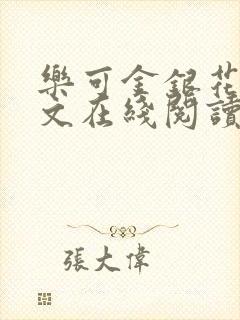 樂可金銀花
文在綫閱讀
張大偉